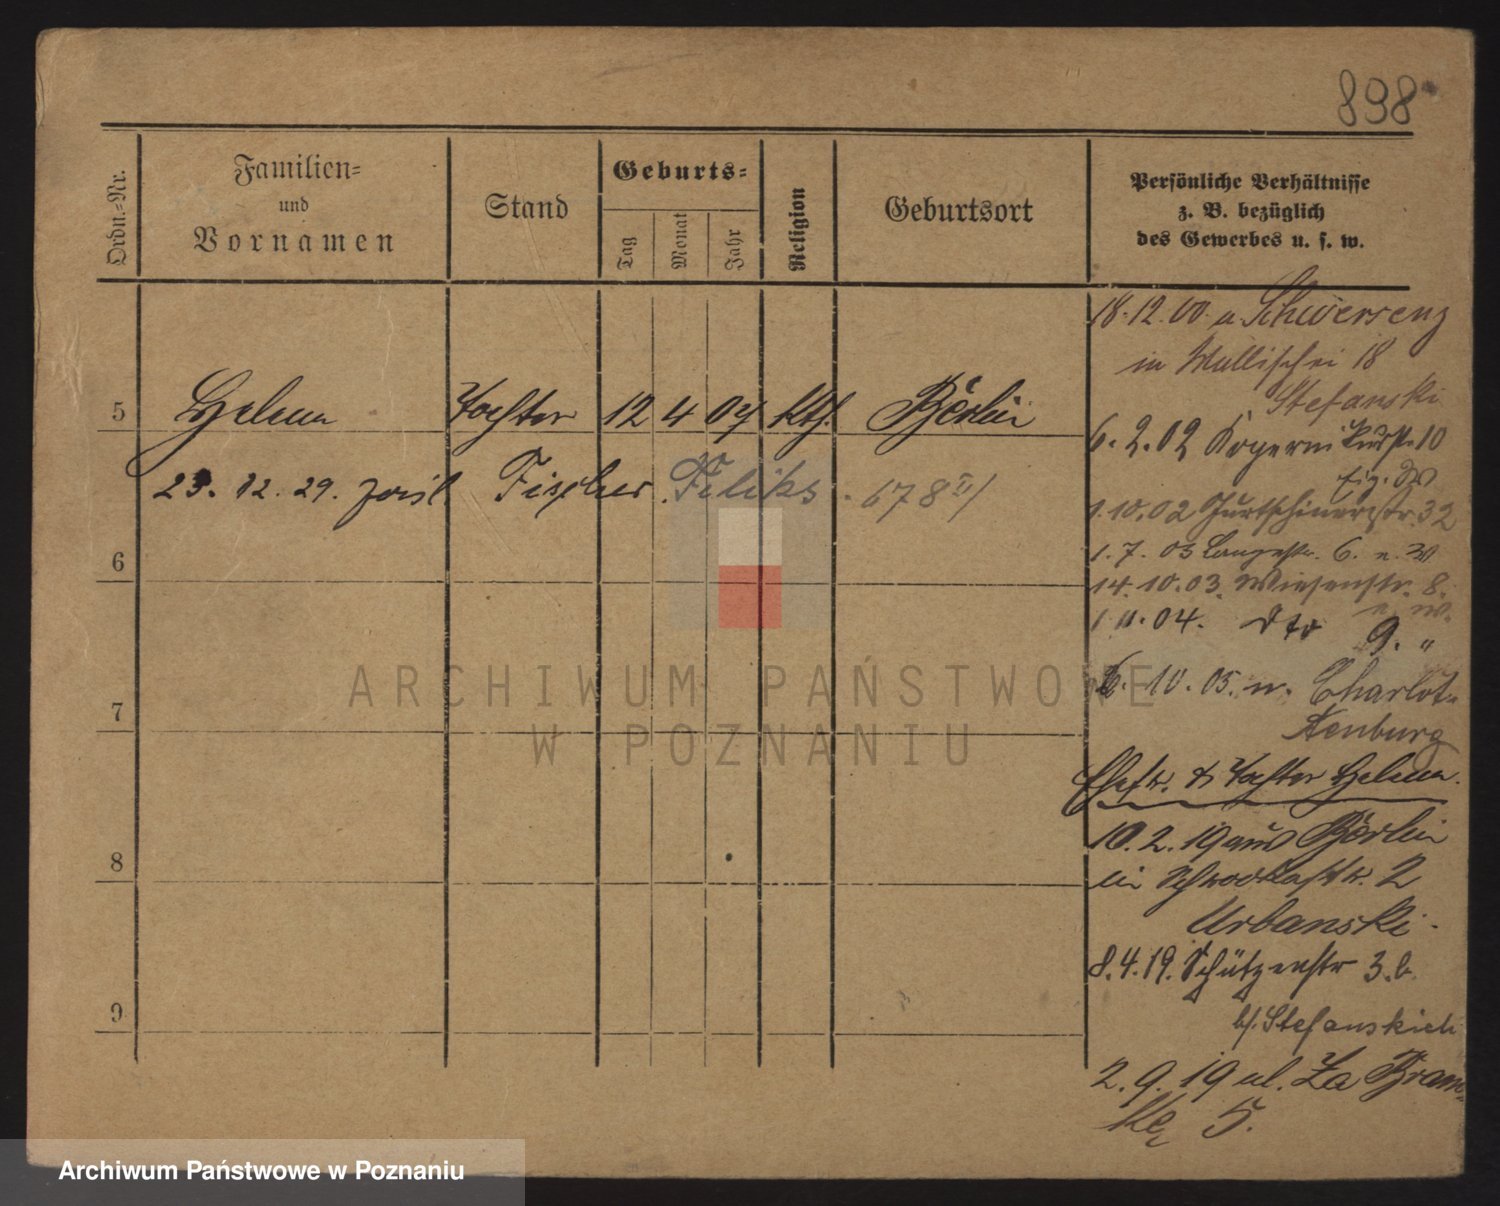 898
Ordn.-Nr.
Familien-
und
Vornamen
Stand
Geburts-
Tag
Monat
Jahr
Religion
Geburtsort
Persönliche Verhältnisse
z. B. bezüglich
des Gewerbes u. s. w.
18.12.00 a. Schwersenz
in Wallischei 18
Stefanski
5 Helena Tochter 12 4 07 kth. Berlin
6.2.02 10
23.12.29. Fischer Feliks. 678 II/
1.10.02 32
1.7.03 Langestr. 6.
6
14.10.03. Wiesenstr. 8.
1.11.04. dto 9. "
6.10.05. n. Charlot-
tenburg
7
Ehefr. & Tochter Helena.
10.2.19 aus Berlin
8
2
Urbanski.
8.4.19. Schützenstr 3.b.
9
b/. Stefanskich
2.9.19 ul. Za Bram-
ke 5.
ARCHIWUM PAŃSTWOWE
W POZNANIU
Archiwum Państwowe w Poznaniu